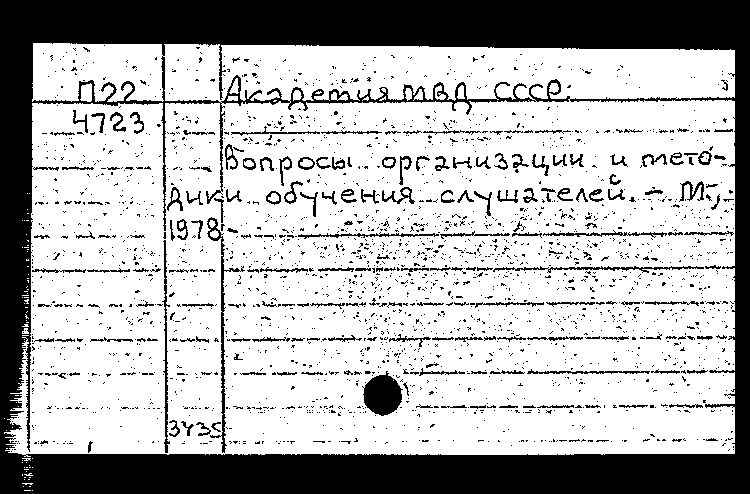 П22 Академия МВД СССР.
4723
Вопросы организации и мето-
дики обучения слушателей. - М.,
1978-
3435